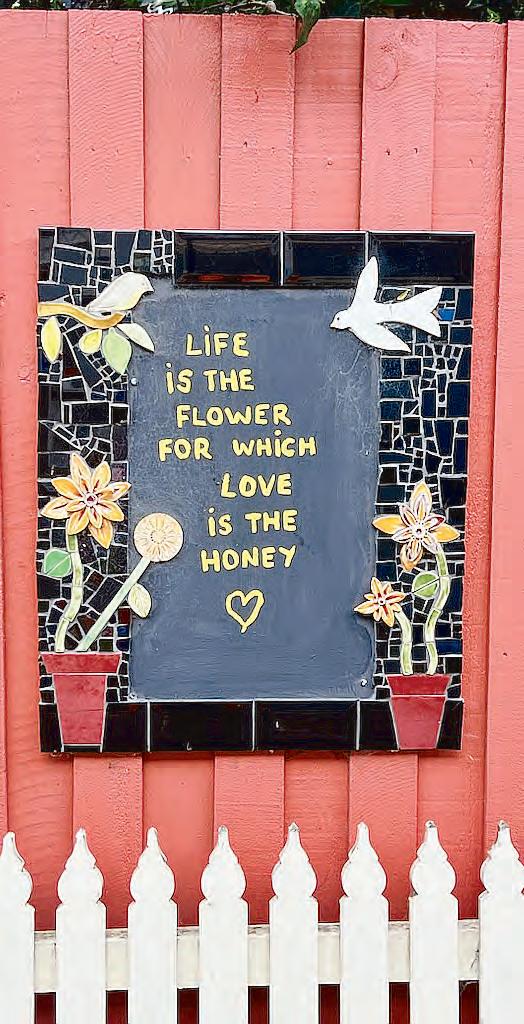 LiFE
iS THE
FLOWER
FOR WHiCH
LOVE
iS THE
HONEY